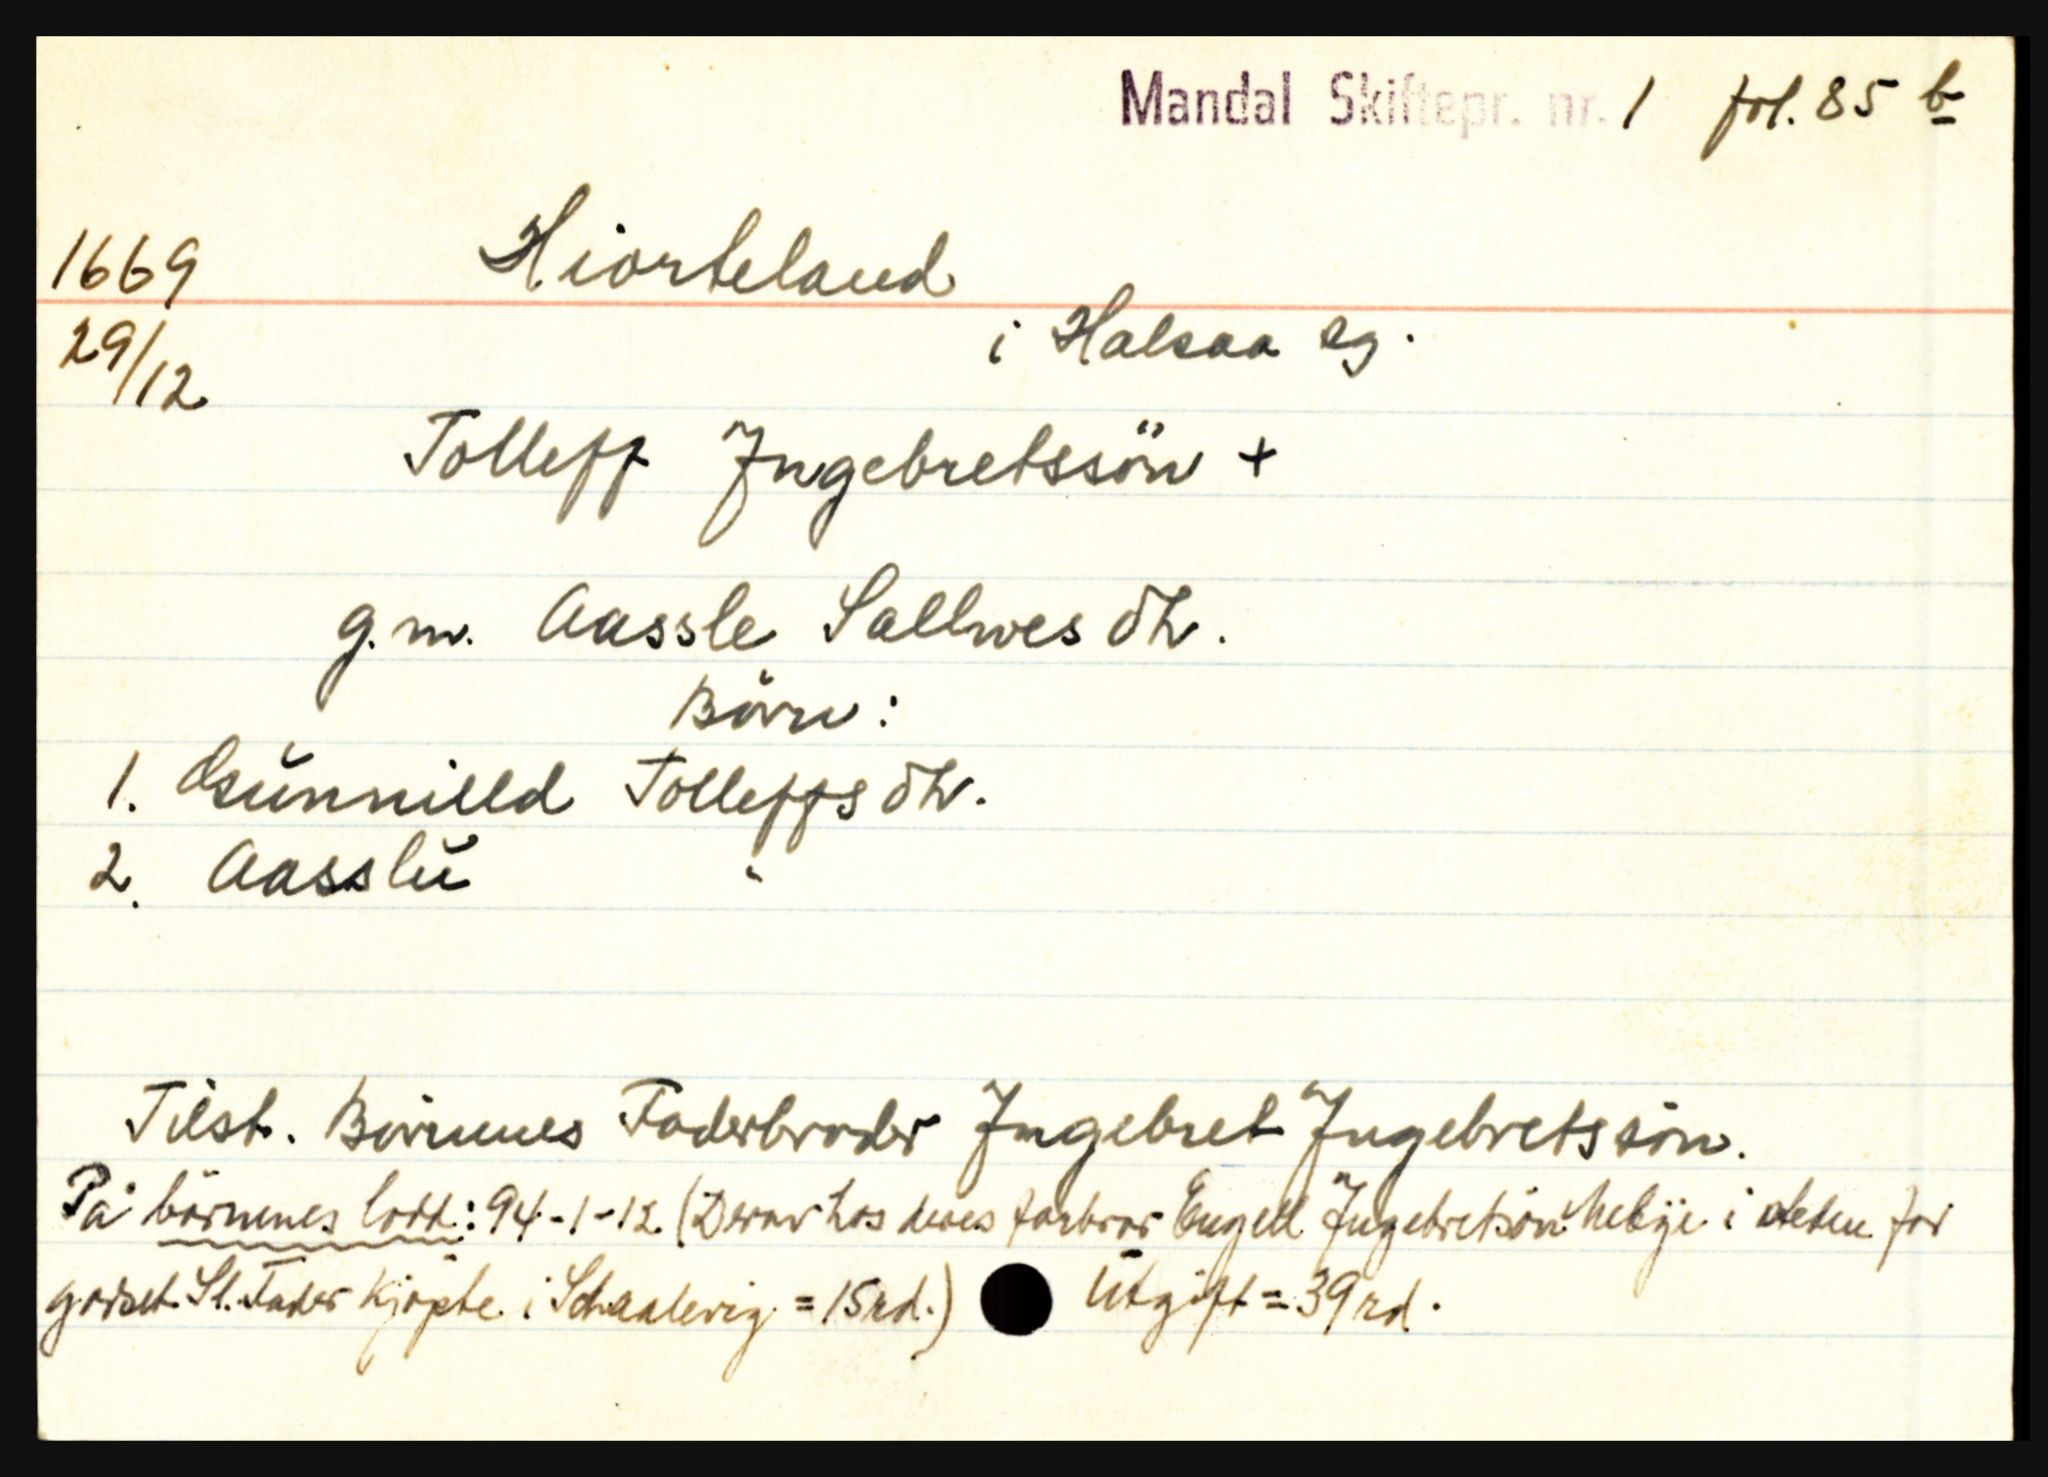 Mandal Skiftepr. nr. 1 fol. 85 b
1669 Hiorteland
29/12 i Halsaa sg.
Tolleff Jngebretssön +
g. m. Aassle Sallwes dtr.
Börn:
1. Gunnilld Tolleffs dtr.
2. Aasslü "
Tilst. Börnenes Faderbroder Jngebret Jngebretssön.
På börnenes lodd: 94-1-12 (Derav hos deres farbror Engell Jngebretsön i for
godset Sl. Fader Kjöpte i Schaalevig = 15 rd.) Utgift = 39 rd.